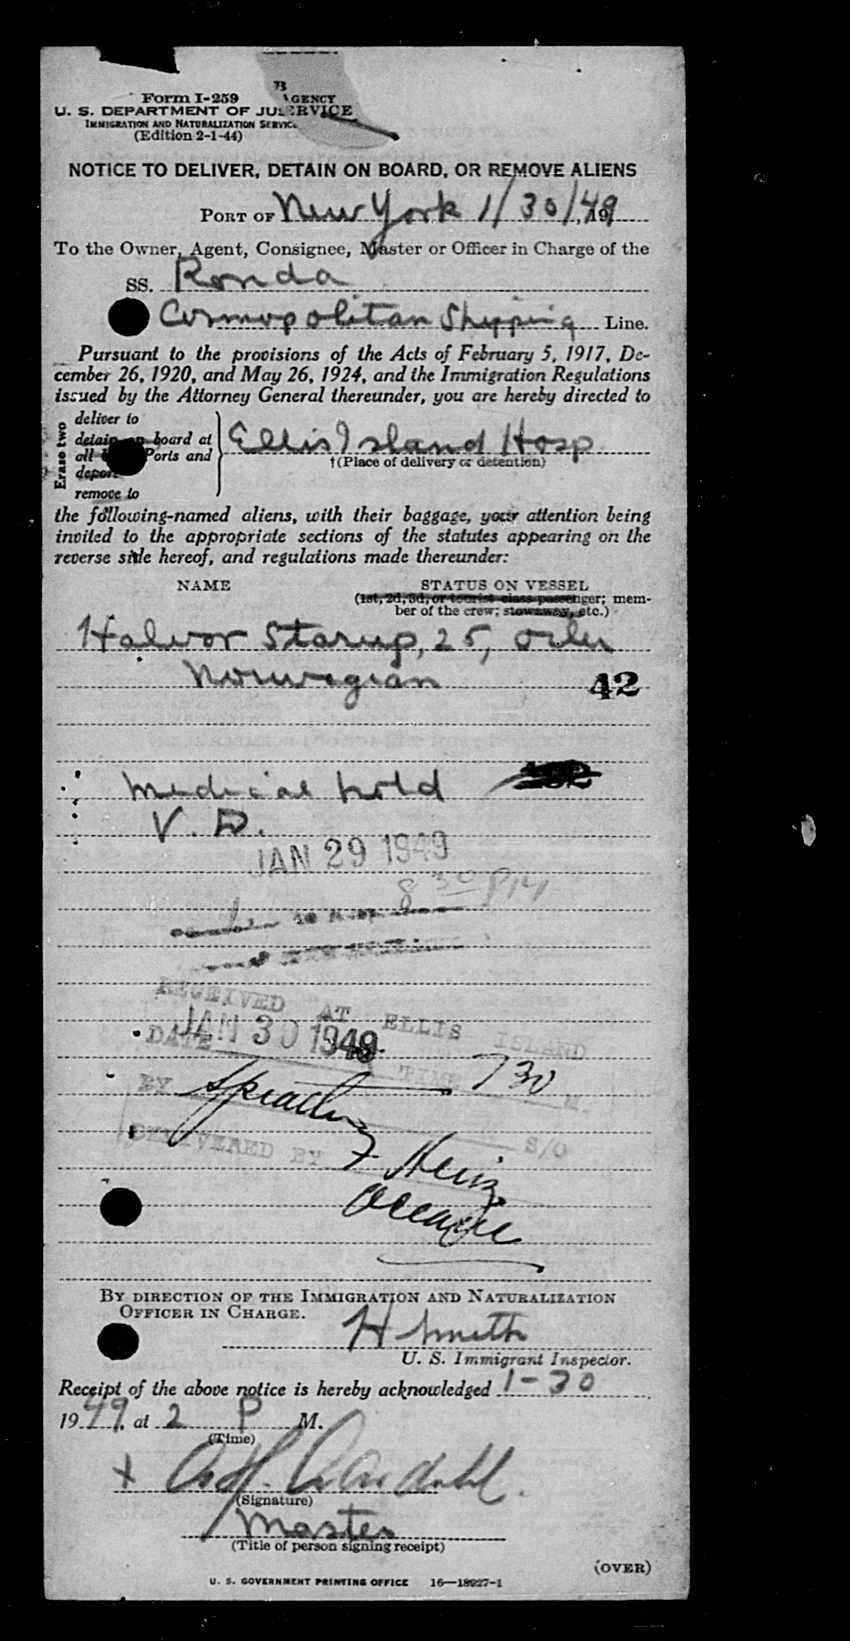 Form I-259
U. S. DEPARTMENT OF JU
IMMIGRATION AND NATURALIZATION SERVICE
(Edition 2-1-44)
AGENCY
SERVICE
NOTICE TO DELIVER, DETAIN ON BOARD, OR REMOVE ALIENS
PORT OF New York 1/30/49, 19
To the Owner, Agent, Consignee, Master or Officer in Charge of the
SS. Ronda
Cosmopolitan Shipping Line.
Pursuant to the provisions of the Acts of February 5, 1917, De-
cember 26, 1920, and May 26, 1924, and the Immigration Regulations
issued by the Attorney General thereunder, you are hereby directed to
Erase two
deliver to
detain on board at
all Ports and
deport
remove to
Ellis Island Hosp
†(Place of delivery or detention)
the following-named aliens, with their baggage, your attention being
invited to the appropriate sections of the statutes appearing on the
reverse side hereof, and regulations made thereunder:
NAME STATUS ON VESSEL
(1st, 2d, 3d, or tourist class passenger; mem-
ber of the crew; stowaway, etc.)
Halvor Starup, 25, oiler
Norwegian 42
Medical hold
V. D.
JAN 29 1949
8 30 PM
RECEIVED AT ELLIS ISLAND
JAN 30 1949
DATE TIME 730 M.
BY S/O
DELIVERED BY
Heinz
BY DIRECTION OF THE IMMIGRATION AND NATURALIZATION
OFFICER IN CHARGE.
H Smith
U. S. Immigrant Inspector.
Receipt of the above notice is hereby acknowledged 1-30
1949, at 2 P M.
(Time)
x
(Signature)
Master
(Title of person signing receipt)
(OVER)
U. S. GOVERNMENT PRINTING OFFICE 16—18927-1